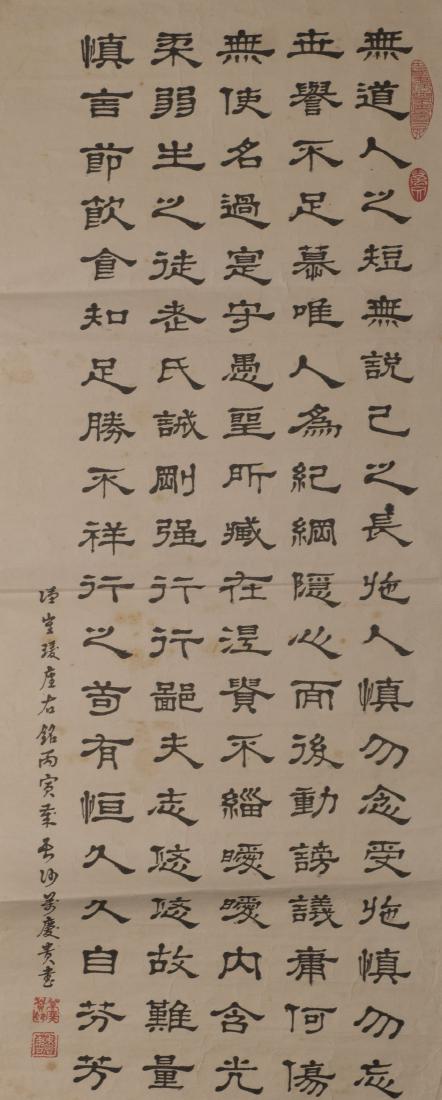 無道人之短無說己之長施人慎勿念受施慎勿忘
世譽不足慕唯人為紀綱隱心而後動謗議庸何傷
無使名過寔守愚聖所臧在涅貴不緇曖曖內含光
柔弱生之徒老氏誡剛强行行鄙夫志悠悠故難量
慎言節飲食知足勝不祥行之苟有恒久久自芬芳
漢崔瑗座右銘丙寅長沙萬慶貴書